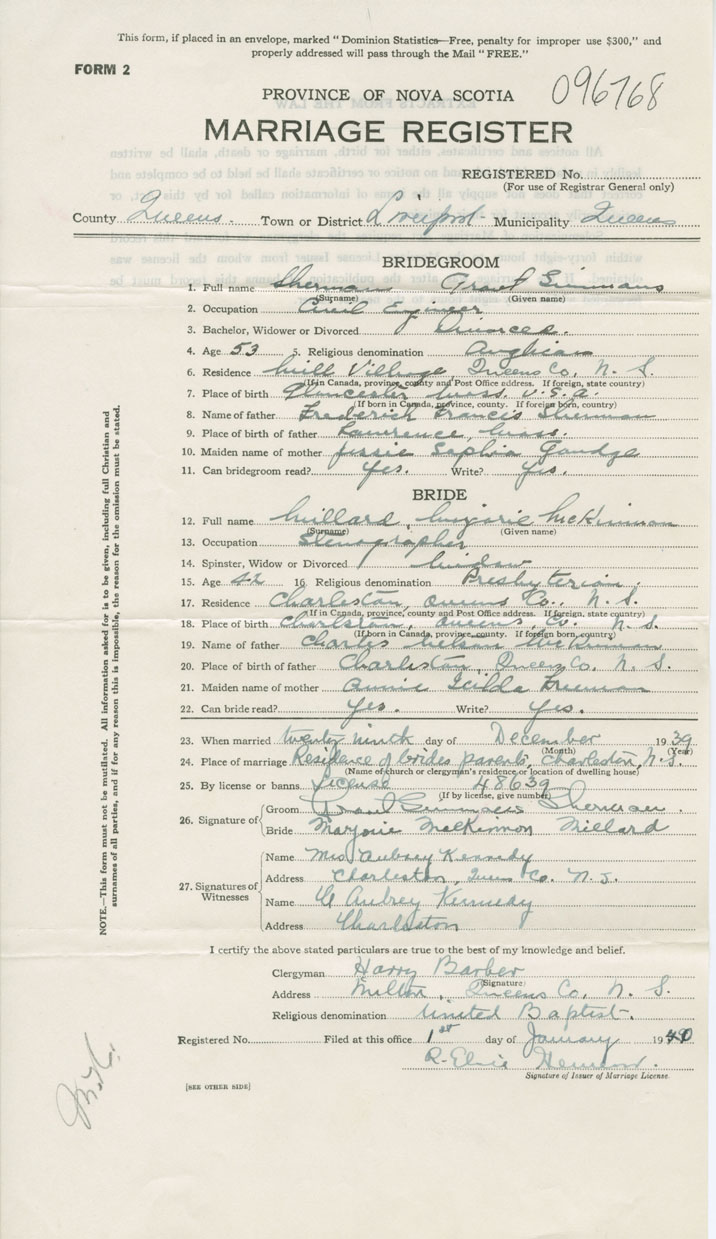 This form, if placed in an envelope, marked "Dominion Statistics—Free, penalty for improper use $300," and
properly addressed will pass through the Mail "FREE."
FORM 2
096768
PROVINCE OF NOVA SCOTIA
MARRIAGE REGISTER
REGISTERED No.
(For use of Registrar General only)
County Queens. Town or District Liverpool Municipality Queens
BRIDEGROOM
1. Full name Sherman Grant Simmons
(Surname) (Given name)
2. Occupation Civil Engineer
3. Bachelor, Widower or Divorced Divorced.
4. Age 53 5. Religious denomination Anglican
6. Residence Mill Village, Queens Co., N. S.
(If in Canada, province, county and Post Office address. If foreign, state country)
7. Place of birth Gloucester Mass. U.S.A.
(If born in Canada, province, county. If foreign born, country)
8. Name of father Frederick Francis Sherman
9. Place of birth of father Lawrence, Mass.
10. Maiden name of mother Jessie Sophia
11. Can bridegroom read? Yes. Write? Yes.
BRIDE
12. Full name Millard, Marjorie McKinnon
(Surname) (Given name)
13. Occupation Stenographer
14. Spinster, Widow or Divorced Widow
15. Age 42 16. Religious denomination Presbyterian.
17. Residence Charleston, Queens Co., N. S.
(If in Canada, province, county and Post Office address. If foreign, state country)
18. Place of birth Charleston, Queens, Co. N. S.
(If born in Canada, province, county. If foreign born, country)
19. Name of father Charles Nelson McKinnon
20. Place of birth of father Charleston, Queens Co. N. S.
21. Maiden name of mother Annie Freeman
22. Can bride read? Yes. Write? Yes.
23. When married twenty ninth day of December 1939
(Month) (Year)
24. Place of marriage Residence of brides parents, Charleston, N.S.
(Name of church or clergyman's residence or location of dwelling house)
25. By license or banns License 48639
(If by license, give number)
26. Signature of
Groom Grant Simmons Sherman.
Bride Marjorie MacKinnon Millard
27. Signatures of Witnesses
Name Mrs Aubrey Kennedy
Address Charleston, Queens Co. N. S.
Name Aubrey Kennedy
Address Charleston
I certify the above stated particulars are true to the best of my knowledge and belief.
Clergyman Harry Barber
(Signature)
Address Milton, Queens Co, N. S.
Religious denomination United Baptist.
Registered No. Filed at this office 1st day of January 1940
R. Elsie
Signature of Issuer of Marriage License.
[SEE OTHER SIDE]
NOTE.—This form must not be mutilated. All information asked for is to be given, including full Christian and
surnames of all parties, and if for any reason this is impossible, the reason for the omission must be stated.